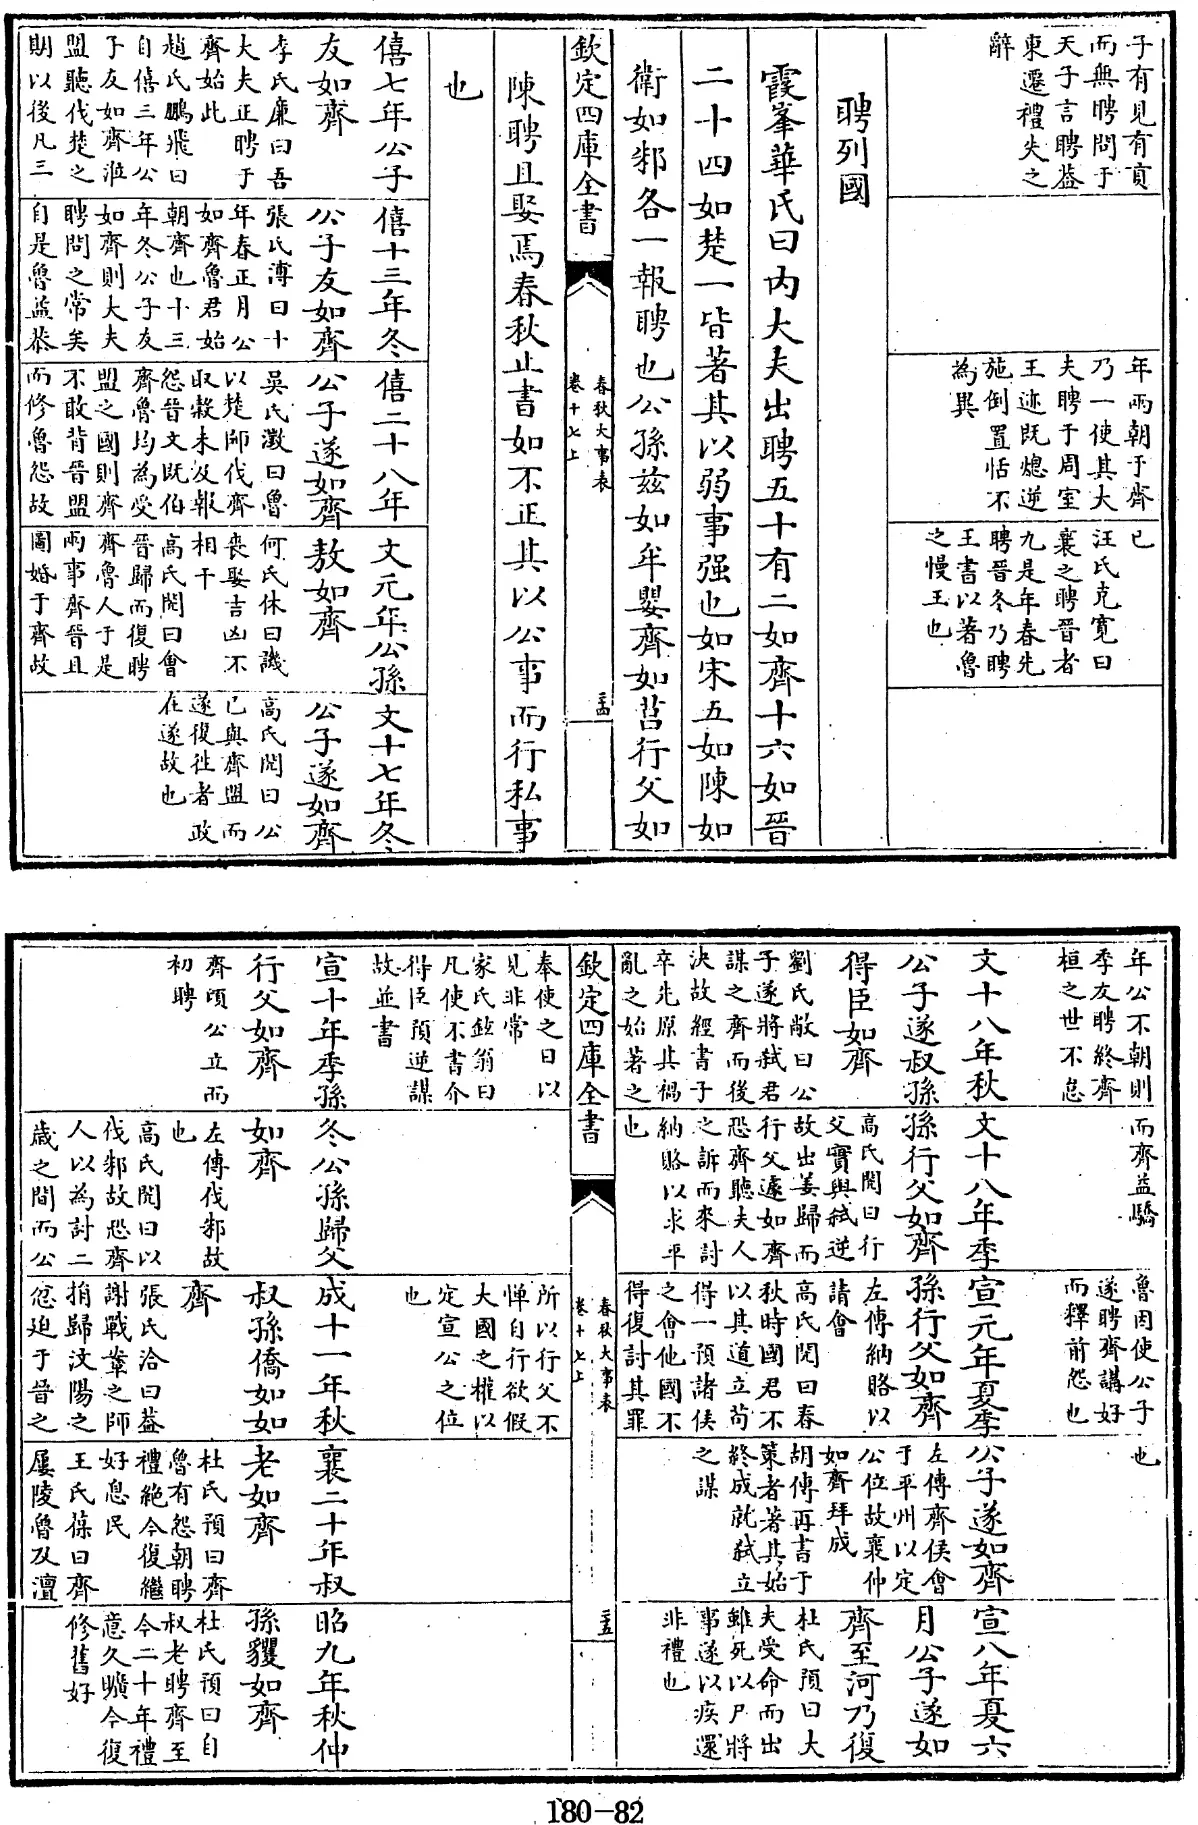 子有見有貢
而無聘問于
天子言聘葢
東遷禮失之
辭
年兩朝于齊
乃一使其大
夫聘于周室
王迹既熄逆
施倒置恬不
為異
已
汪氏克寬曰
襄之聘晉者
九是年春先
聘晉冬乃聘
王書以著魯
之慢王也
聘列國
霞峯華氏曰内大夫出聘五十有二如齊十六如晉
二十四如楚一皆著其以弱事强也如宋五如陳如
衛如邾各一報聘也公孫兹如牟嬰齊如莒行父如
欽定四庫全書
春秋大事表
卷十七上
陳聘且娶焉春秋止書如不正其以公事而行私事
也
僖七年公子
友如齊
李氏廉曰吾
大夫正聘于
齊始此
趙氏鵬飛曰
自僖三年公
子友如齊涖
盟聽伐楚之
期以後凡三
僖十三年冬
公子友如齊
張氏溥曰十
年春正月公
如齊魯君始
朝齊也十三
年冬公子友
如齊則大夫
聘問之常矣
自是魯益恭
僖二十八年
公子遂如齊
吳氏澂曰魯
以楚師伐齊
取穀未及報
怨晉文既伯
齊魯均為受
盟之國則齊
不敢背晉盟
而修魯怨故
文元年公孫
敖如齊
何氏休曰譏
喪娶吉凶不
相干
高氏閌曰會
晉歸而復聘
齊魯人于是
兩事齊晉且
圖婚于齊故
文十七年冬
公子遂如齊
高氏閌曰公
已與齊盟而
遂復往者政
在遂故也
年公不朝則
季友聘終齊
桓之世不怠
而齊益驕
魯因使公子
遂聘齊講好
而釋前怨也
也
文十八年秋
公子遂叔孫
得臣如齊
劉氏敞曰公
子遂將弑君
謀之齊而後
決故經書子
卒先原其禍
亂之始著之
文十八年季
孫行父如齊
高氏閌曰行
父實與弑逆
故出姜歸而
行父遽如齊
恐齊聽夫人
之訴而來討
納賂以求平
也
宣元年夏季
孫行父如齊
左傳納賂以
請會
高氏閌曰春
秋時國君不
以其道立苟
得一預諸侯
之會他國不
得復討其罪
公子遂如齊
左傳齊侯會
于平州以定
公位故襄仲
如齊拜成
胡傳再書于
策者著其始
終成就弑立
之謀
宣八年夏六
月公子遂如
齊至河乃復
杜氏預曰大
夫受命而出
雖死以尸將
事遂以疾還
非禮也
欽定四庫全書
春秋大事表
卷十七上
奉使之日以
見非常
家氏鉉翁曰
凡使不書介
得臣預逆謀
故並書
所以行父不
憚自行欲假
大國之權以
定宣公之位
也
宣十年季孫
行父如齊
齊頃公立而
初聘
冬公孫歸父
如齊
左傳伐邾故
也
高氏閌曰以
伐邾故恐齊
人以為討二
歲之間而公
成十一年秋
叔孫僑如如
齊
張氏洽曰葢
謝戰鞌之師
捐歸汶陽之
忿迫于晉之
襄二十年叔
老如齊
杜氏預曰齊
魯有怨朝聘
禮絶今復繼
好息民
王氏葆曰齊
屢陵魯及澶
昭九年秋仲
孫貜如齊
杜氏預曰自
叔老聘齊至
今二十年禮
意久曠今復
修舊好
180-82